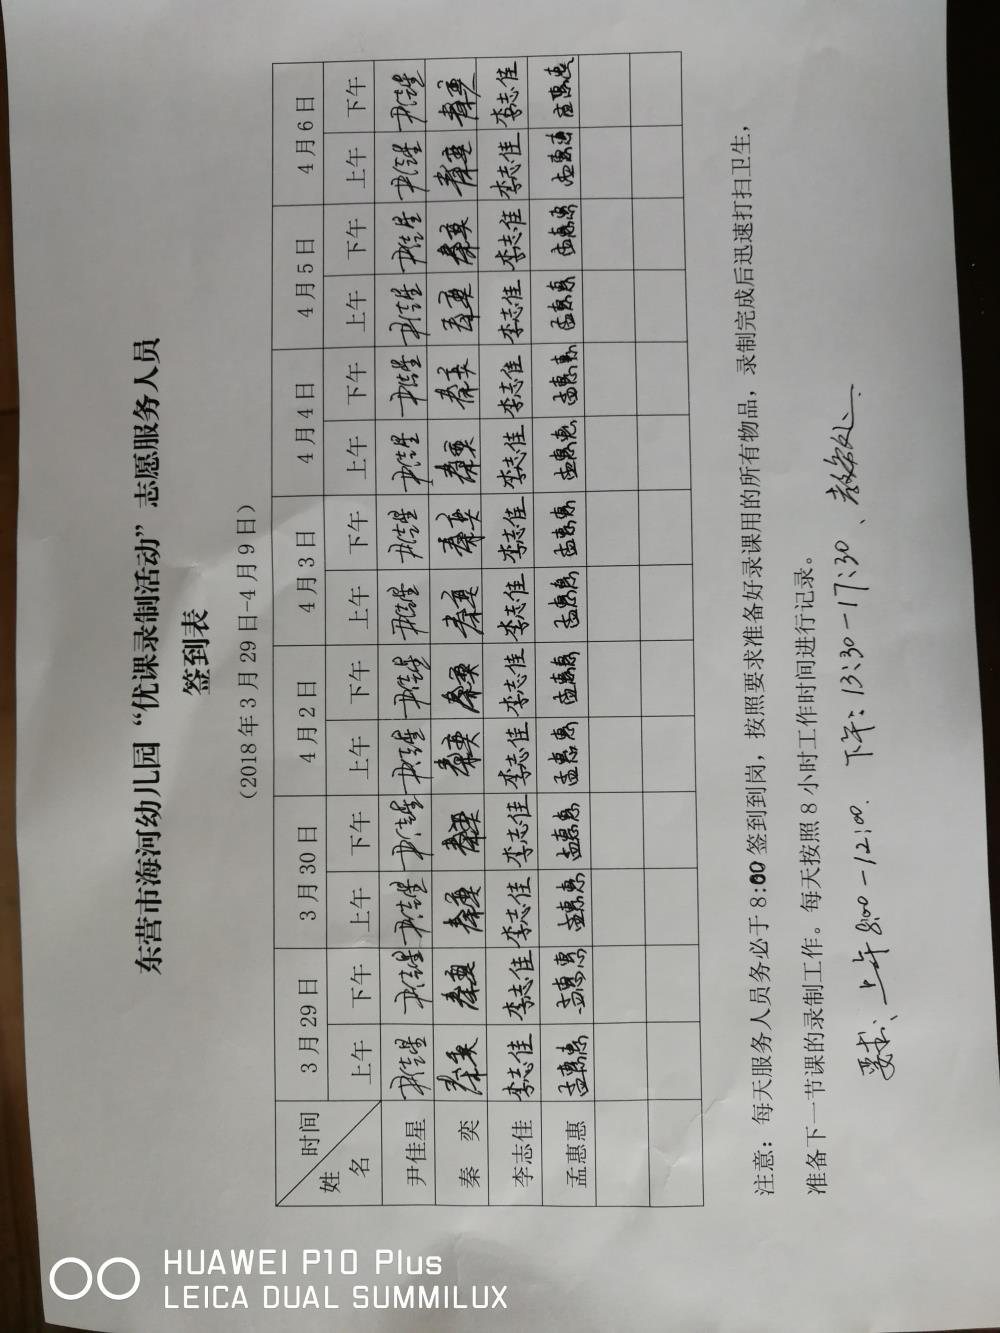 东营市海河幼儿园“优课录制活动”志愿服务人员
签到表
（2018年3月29日-4月9日）
时间 3月29日 3月30日 4月2日 4月3日 4月4日 4月5日 4月6日
姓名 上午 下午 上午 下午 上午 下午 上午 下午 上午 下午 上午 下午 上午 下午
尹佳星 尹佳星 尹佳星 尹佳星 尹佳星 尹佳星 尹佳星 尹佳星 尹佳星 尹佳星 尹佳星 尹佳星 尹佳星 尹佳星 尹佳星
秦 奕 秦奕 秦奕 秦奕 秦奕 秦奕 秦奕 秦奕 秦奕 秦奕 秦奕 秦奕 秦奕 秦奕 秦奕
李志佳 李志佳 李志佳 李志佳 李志佳 李志佳 李志佳 李志佳 李志佳 李志佳 李志佳 李志佳 李志佳 李志佳 李志佳
孟惠惠 孟惠惠 孟惠惠 孟惠惠 孟惠惠 孟惠惠 孟惠惠 孟惠惠 孟惠惠 孟惠惠 孟惠惠 孟惠惠 孟惠惠 孟惠惠 孟惠惠
注意：每天服务人员务必于8:00签到到岗，按照要求准备好录课用的所有物品，录制完成后迅速打扫卫生，
准备下一节课的录制工作。每天按照8小时工作时间进行记录。
要求：上午8:00-12:00. 下午：13:30-17:30、教务处.
HUAWEI P10 Plus
LEICA DUAL SUMMILUX